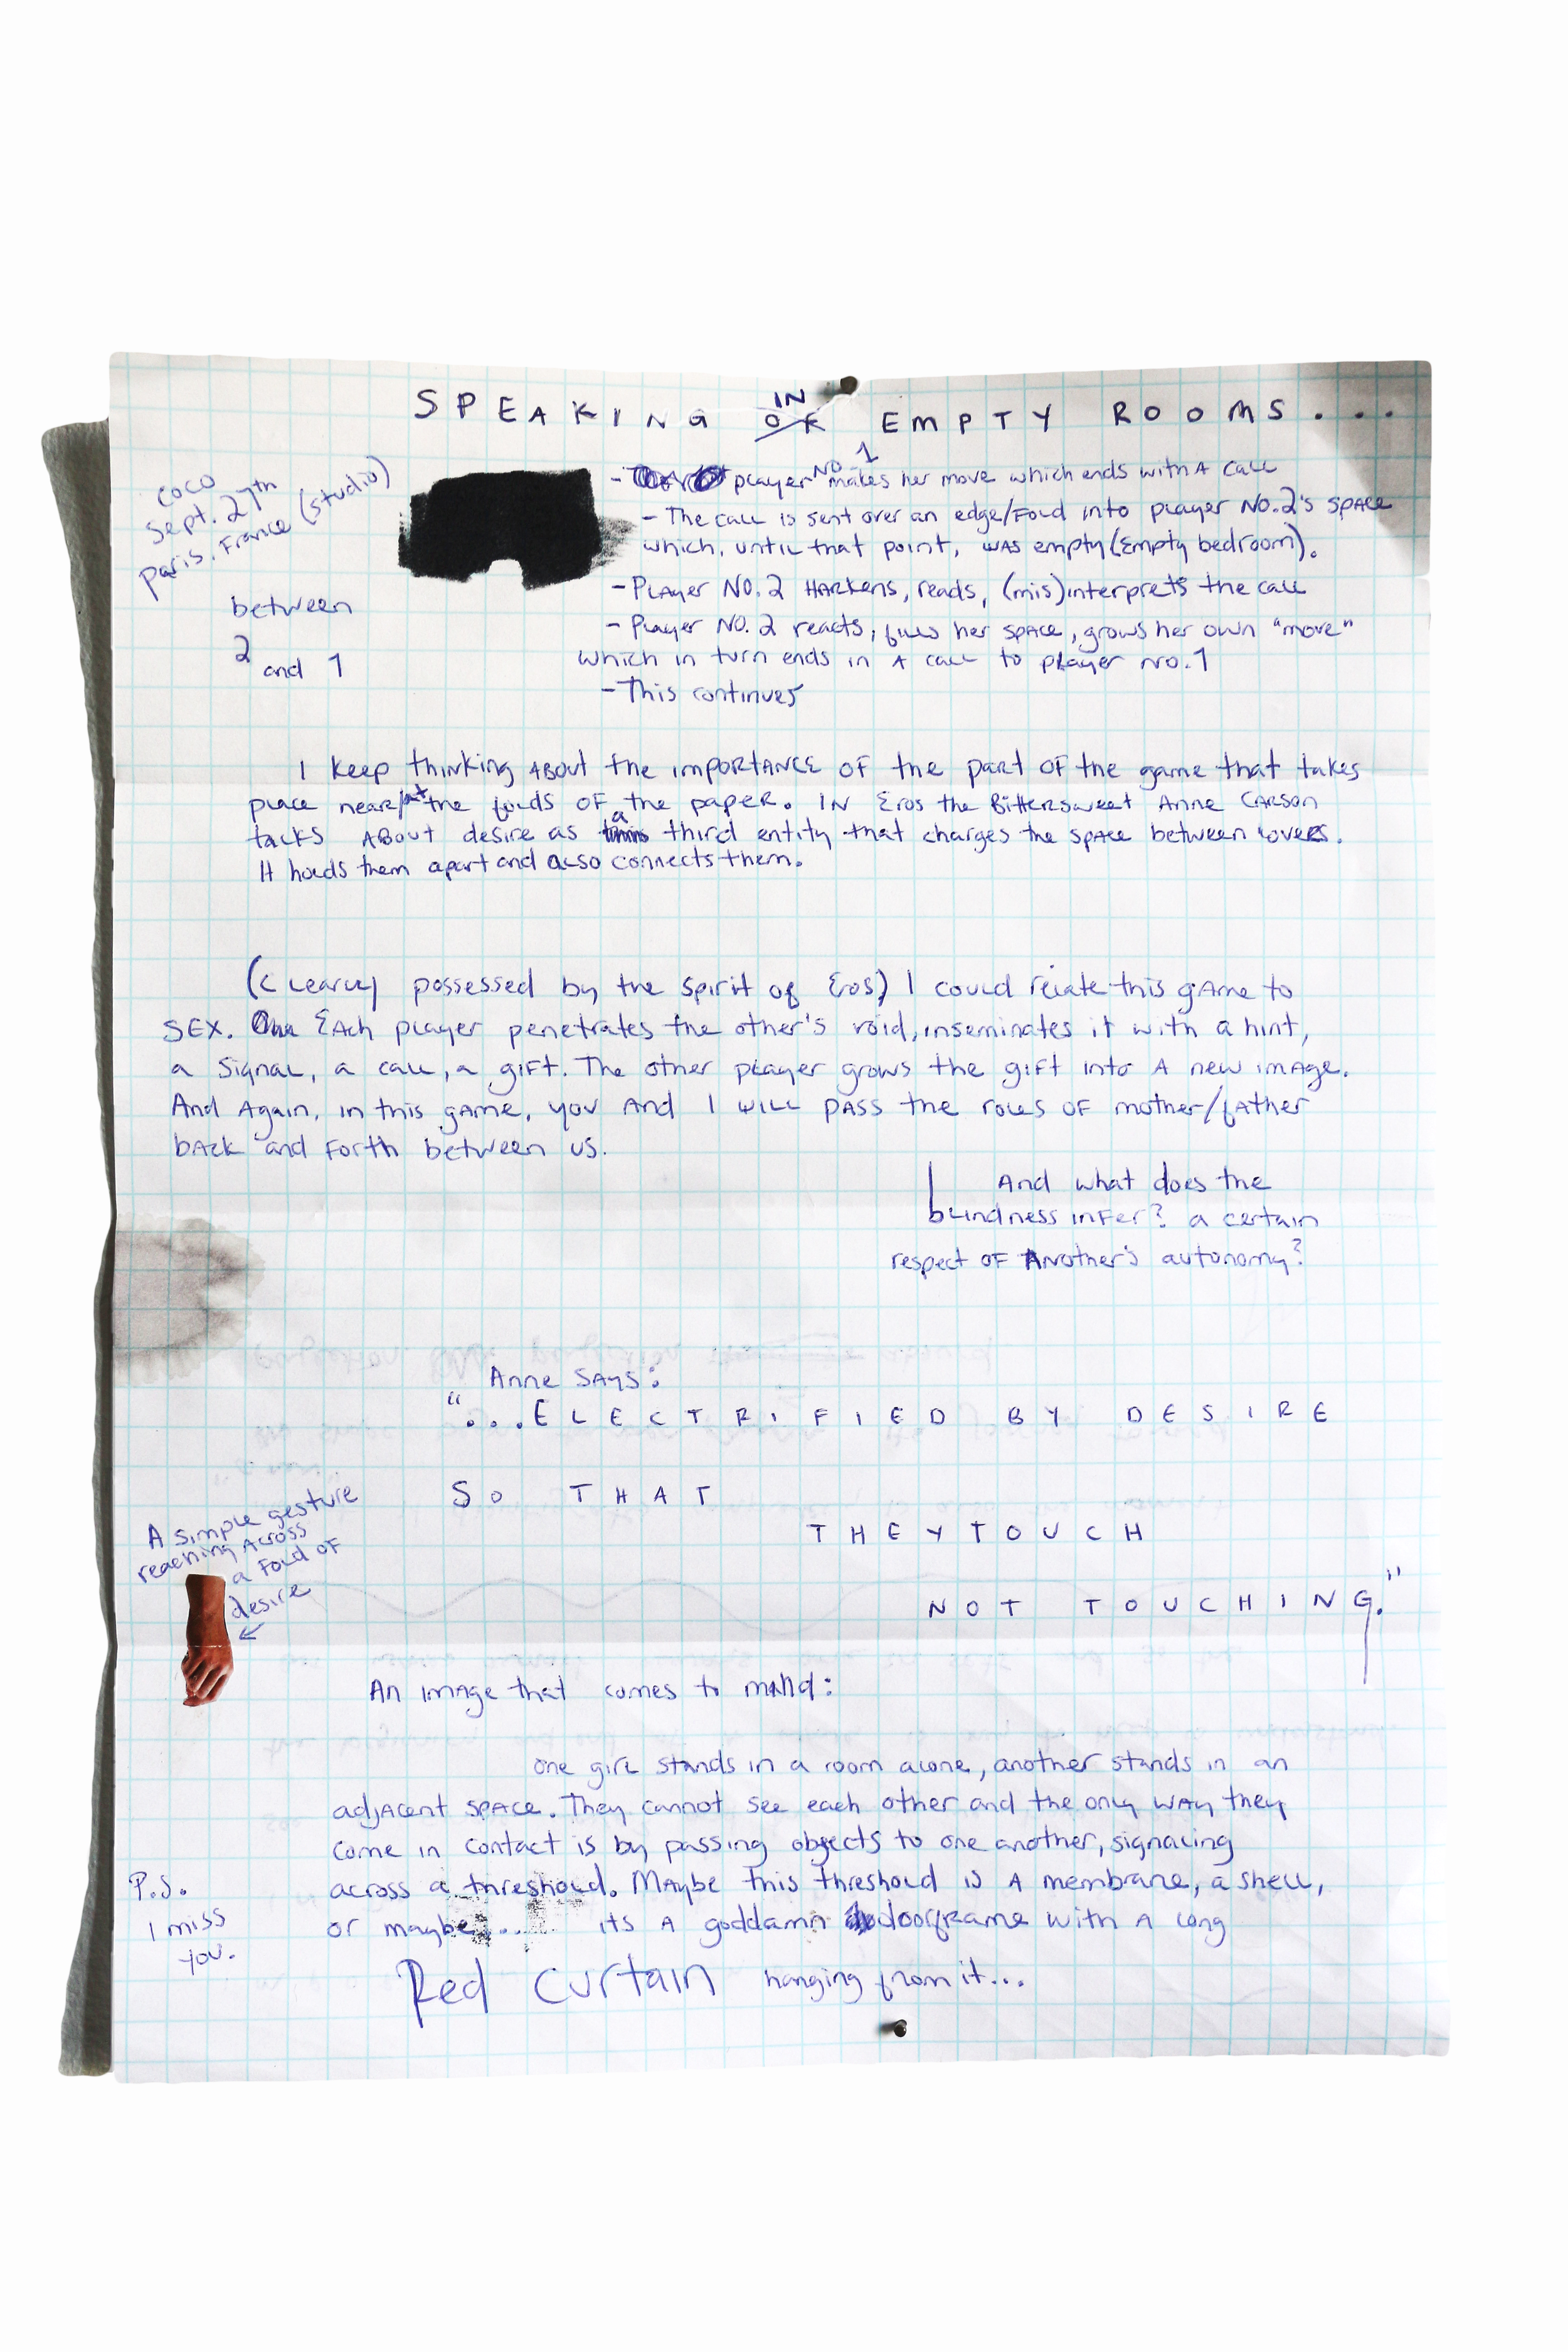 SPEAKING IN OF EMPTY ROOMS...
COCO
Sept. 27th
paris. France (studio)
between
2 and 1
- player NO. 1 makes her move which ends with A call
- The call is sent over an edge/FOLD into player NO. 2's space
which, until that point, was empty (Empty bedroom).
- Player NO. 2 HARKens, reads, (mis)interprets the call
- Player NO. 2 reacts, fills her space, grows her own "move"
which in turn ends in A call to player no. 1
- This continues
I keep thinking ABOUT the IMPORTANCE OF the part OF the game that takes
place near/at the folds OF the paper. IN Eros the Bittersweet Anne CARSON
talks ABOUT desire as a third entity that charges the space between lovers.
It holds them apart and also connects them.
(Clearly possessed by the spirit of Eros) I could relate this gAme to
SEX. EAch player penetrates the other's void, inseminates it with a hint,
a signal, a call, a gift. The other player grows the gift into A new imAge.
And Again, in this gAme, you And I will pass the roles OF mother/fAther
bAck and forth between us.
And what does the
blindness inFer? a certain
respect OF ANother's autonomy?
Anne SAYS:
"...ELECTRIFIED BY DESIRE
SO THAT
THEY TOUCH
NOT TOUCHING."
A simple gesture
reaching ACROSS
a FOLD OF
desire
An image that comes to mind:
one girl stands in a room alone, another stands in an
adjAcent space. They cannot see each other and the only wAy they
come in contact is by passing objects to one another, signaling
across a threshold. MAybe this threshold is A membrane, a shell,
or maybe... its A goddamn doorframe with A long
Red Curtain hanging from it...
P.S.
I miss
you.